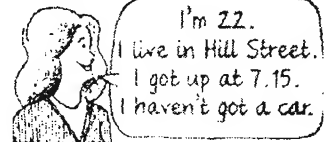 I'm 22.
I live in Hill Street.
I got up at 7.15.
I haven't got a car.